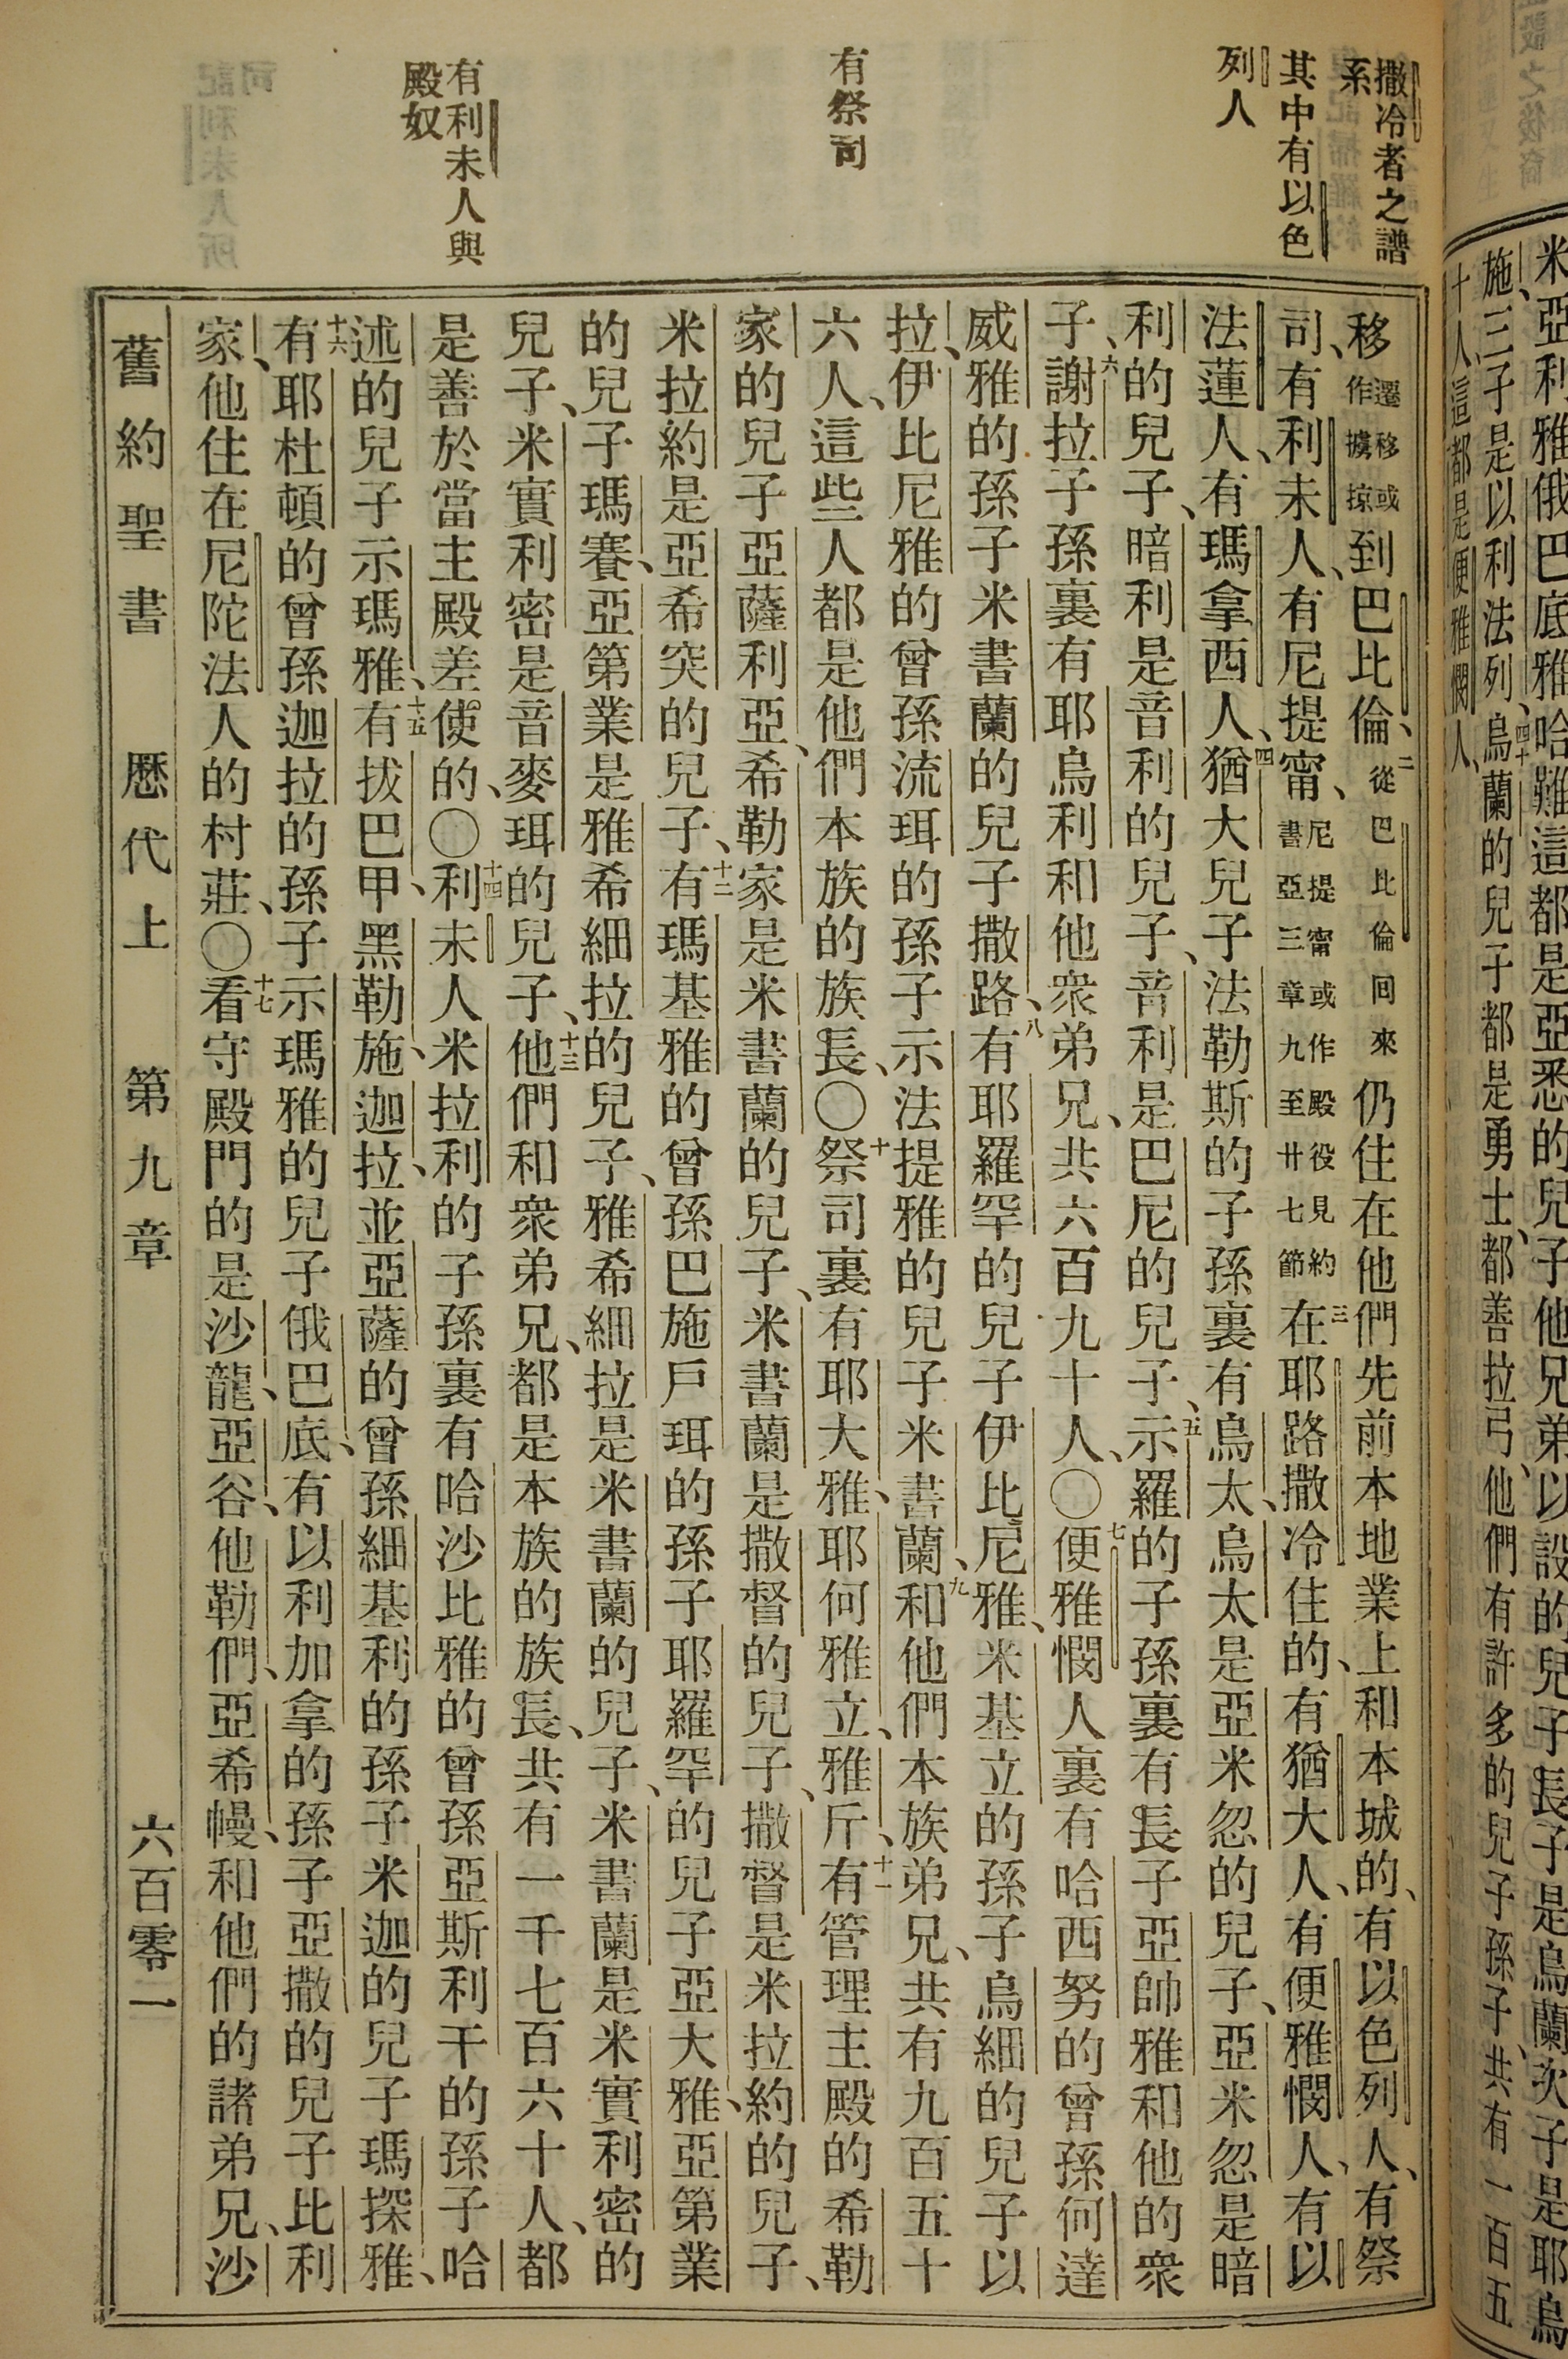 米亞利雅俄巴底雅哈難這都是亞悉的兒子、他兄弟以設的兒子長子是烏蘭次子是耶烏
施、三子是以利法列、四十烏蘭的兒子都是勇士、都善拉弓、他們有許多的兒子孫子、共有一百五
十人、這都是便雅憫人、
撒冷者之譜
系
其中有以色
列人
有祭司
有利未人與
殿奴
移遷移或作擄掠到巴比倫、二從巴比倫回來仍住在他們先前本地業上和本城的、有以色列人、有祭
司、有利未人、有尼提甯、尼提甯或作殿役見約書亞三章九至廿七節三在耶路撒冷住的、有猶大人、有便雅憫人、有以
法蓮人、有瑪拿西人、四猶大兒子法勒斯的子孫裏有烏太、烏太是亞米忽的兒子、亞米忽是暗
利的兒子、暗利是音利的兒子、音利是巴尼的兒子、五示羅的子孫裏有長子亞帥雅和他的衆
子、六謝拉子孫裏有耶烏利和他衆弟兄、共六百九十人、〇七便雅憫人裏有哈西努的曾孫何達
威雅的孫子米書蘭的兒子撒路、八有耶羅罕的兒子伊比尼雅、米基立的孫子烏細的兒子以
拉、伊比尼雅的曾孫流珥的孫子示法提雅的兒子米書蘭、九和他們本族弟兄、共有九百五十
六人、這些人都是他們本族的族長、〇十祭司裏有耶大雅、耶何雅立、雅斤、十一有管理主殿的希勒
家的兒子亞薩利亞、希勒家是米書蘭的兒子、米書蘭是撒督的兒子、撒督是米拉約的兒子、
米拉約是亞希突的兒子、十二有瑪基雅的曾孫巴施戶珥的孫子耶羅罕的兒子亞大雅、亞第業
的兒子瑪賽、亞第業是雅希細拉的兒子、雅希細拉是米書蘭的兒子、米書蘭是米實利密的
兒子、米實利密是音麥珥的兒子、十三他們和衆弟兄、都是本族的族長、共有一千七百六十人、都
是善於當主殿差使的、〇十四利未人米拉利的子孫裏有哈沙比雅的曾孫亞斯利干的孫子哈
述的兒子示瑪雅、十五有拔巴甲、黑勒施、迦拉、並亞薩的曾孫細基利的孫子米迦的兒子瑪探雅、
十六有耶杜頓的曾孫迦拉的孫子示瑪雅的兒子俄巴底、有以利加拿的孫子亞撒的兒子比利
家、他住在尼陀法人的村莊、〇十七看守殿門的是沙龍、亞谷、他勒們、亞希幔、和他們的諸弟兄、沙
舊約聖書 歷代上 第九章 六百零一